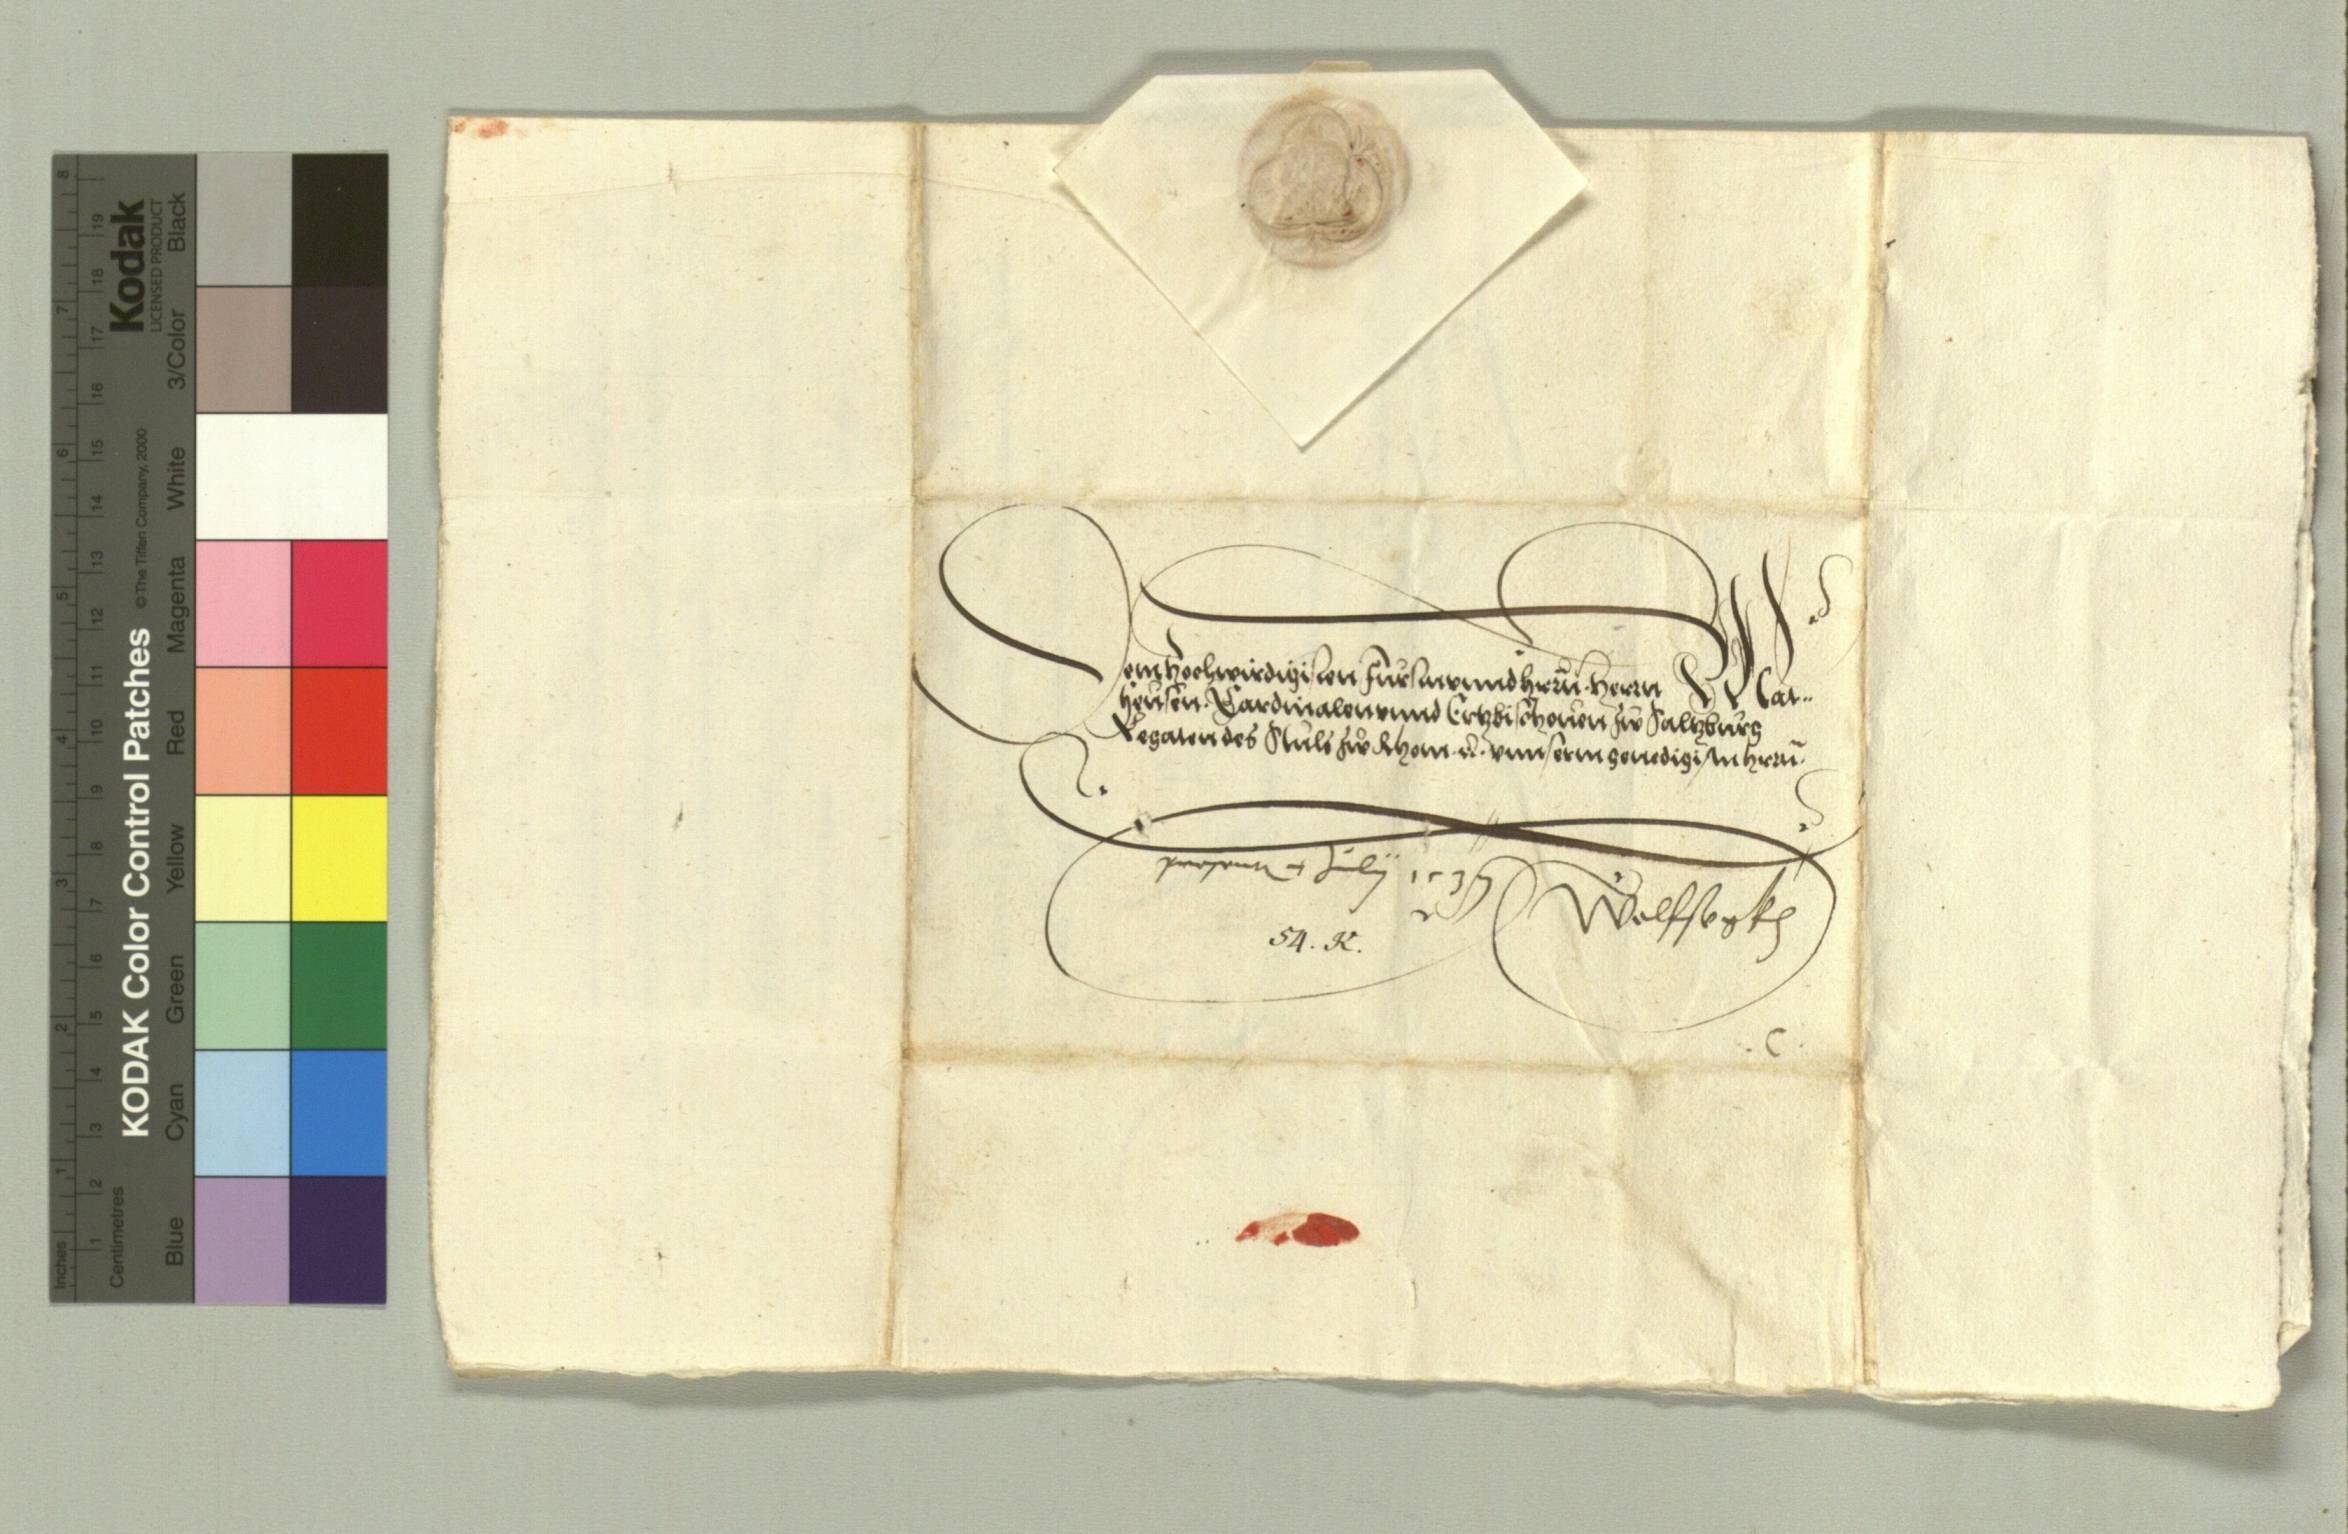 Dem Hochwirdigisten Fürsten vnnd herrn. Herrn Mat..
heusen. Cardinalen vnnd Ertzbischouen zw Saltzburg
Legaten des Stuls zw Rhom. &c. vnnserm genedigisten herrn.
present 7 Julij 1537
54. K.
C.
Kodak
LICENSED PRODUCT
KODAK Color Control Patches
© The Tiffen Company, 2000
Inches
1 2 3 4 5 6 7 8
Centimetres
1 2 3 4 5 6 7 8 9 10 11 12 13 14 15 16 17 18 19
Blue
Cyan
Green
Yellow
Red
Magenta
White
3/Color
Black